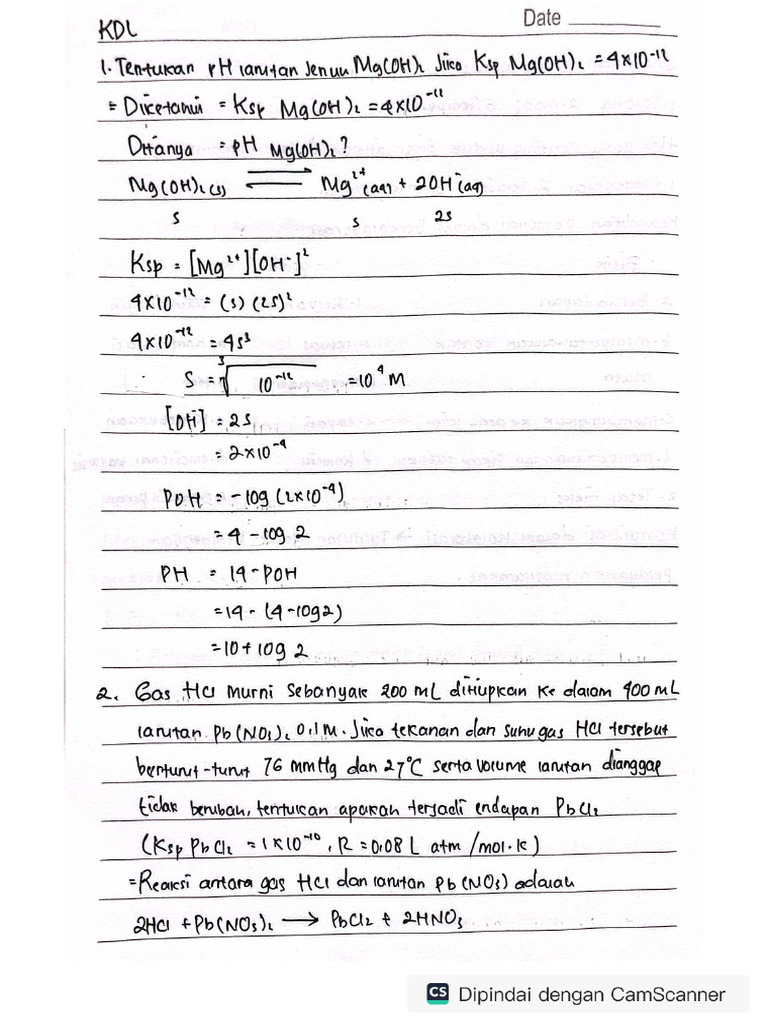 Date
KDL
1. Tentukan pH larutan Jenuh Mg(OH)₂ Jika Ksp Mg(OH)₂ = 4×10⁻¹²
= Diketahui = Ksp Mg(OH)₂ = 4×10⁻¹²
Ditanya = pH Mg(OH)₂?
Mg(OH)₂(s) ⇌ Mg²⁺(aq) + 2OH⁻(aq)
s s 2s
Ksp = [Mg²⁺][OH⁻]²
4×10⁻¹² = (s) (2s)²
4×10⁻¹² = 4s³
S = ³√10⁻¹² = 10⁴ M
[OH] = 2s
= 2×10⁻⁴
POH = -log (2×10⁻⁴)
= 4 - log 2
PH = 14 - POH
= 14 - (4 - log 2)
= 10 + log 2
2. Gas HCl Murni Sebanyak 200 mL ditiupkan Ke dalam 400 mL
larutan Pb(NO₃)₂ 0,1 M. Jika tekanan dan suhu gas HCl tersebut
berturut-turut 76 mmHg dan 27°C serta volume larutan dianggap
tidak berubah, tentukan apakah terjadi endapan PbCl₂
(Ksp PbCl₂ = 1×10⁻¹⁰, R = 0,08 L atm /mol.k)
= Reaksi antara gas HCl dan larutan Pb(NO₃) adalah
2HCl + Pb(NO₃)₂ → PbCl₂ + 2HNO₃
CS Dipindai dengan CamScanner